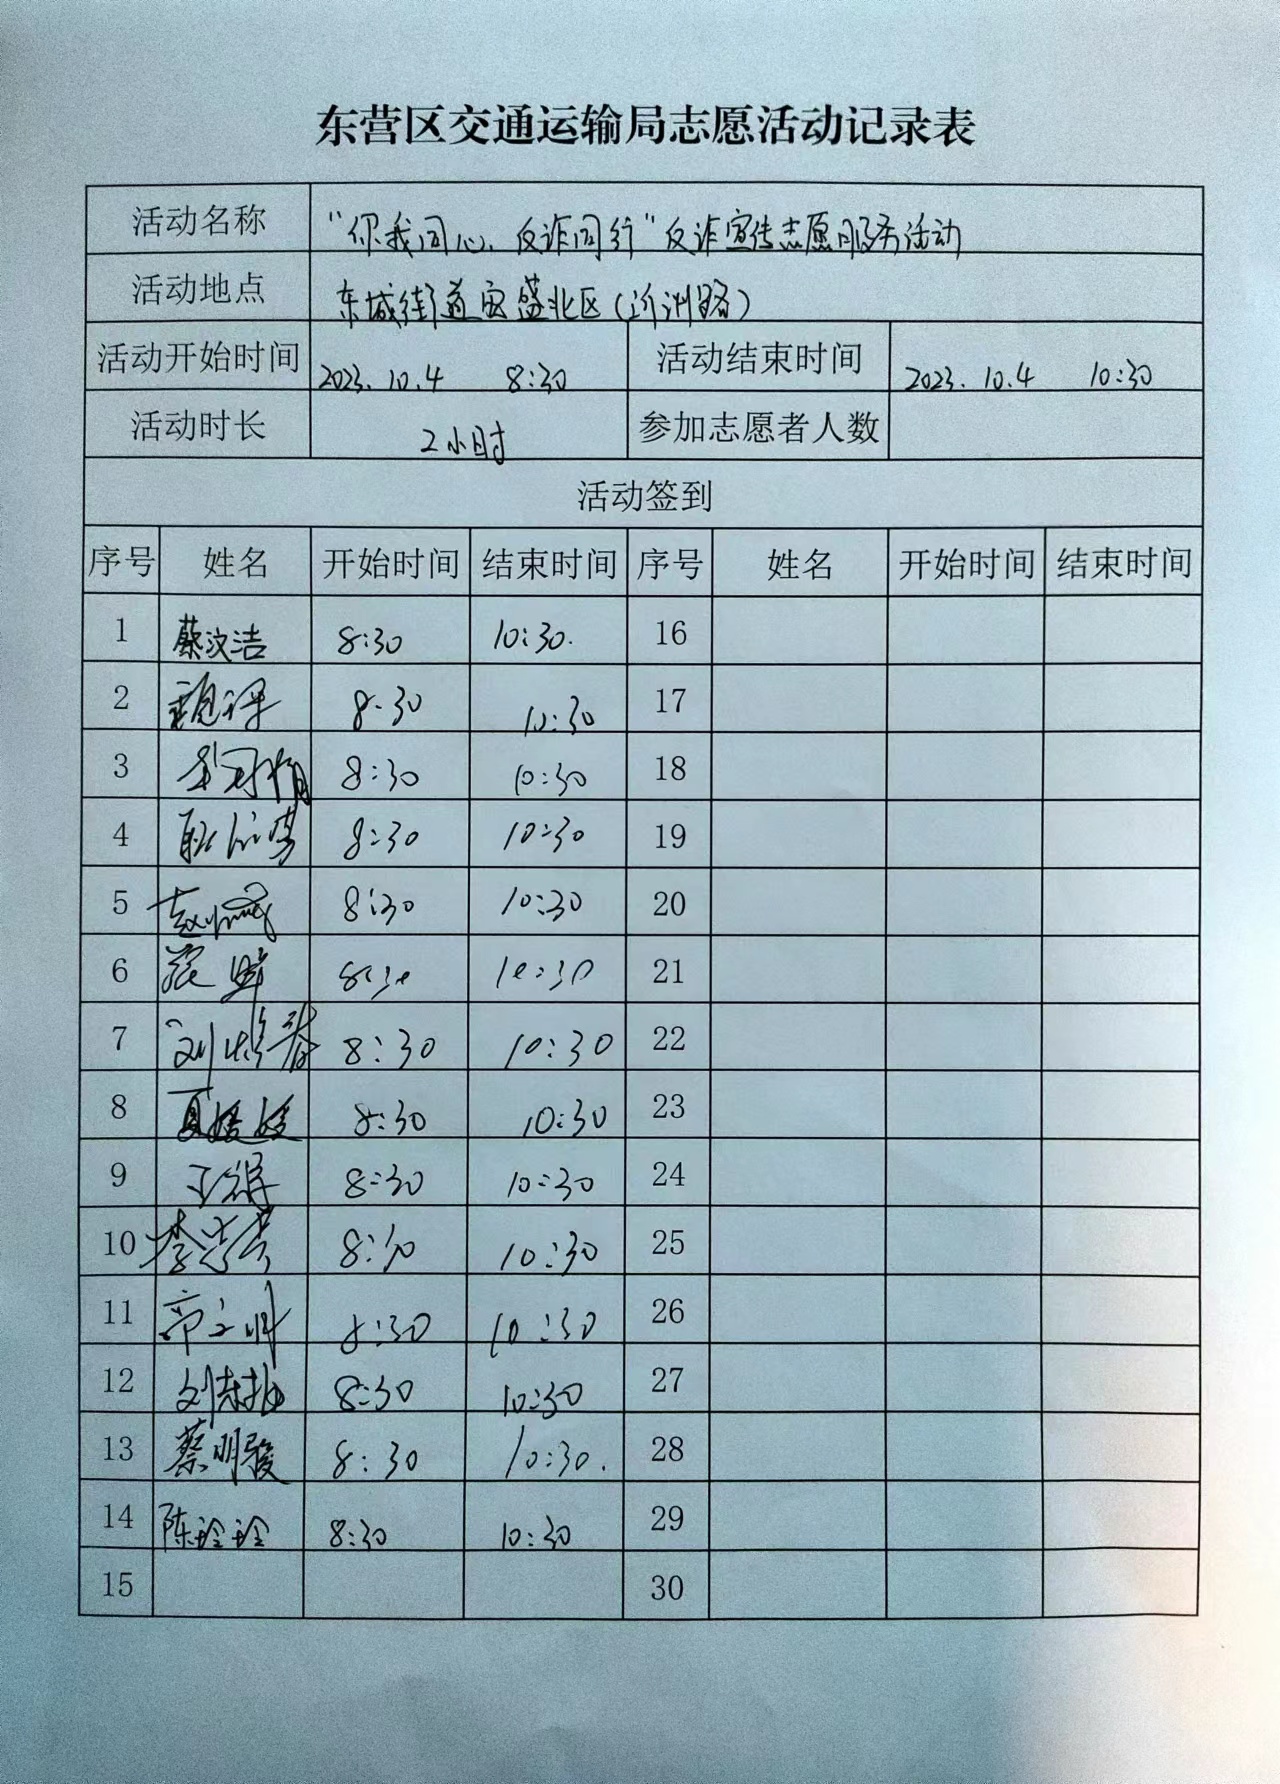 东营区交通运输局志愿活动记录表
活动名称 “你我同心、反诈同行”反诈宣传志愿服务活动
活动地点 东城街道安盛北区(沂州路)
活动开始时间 2023.10.4 8:30 活动结束时间 2023.10.4 10:30
活动时长 2小时 参加志愿者人数
活动签到
序号 姓名 开始时间 结束时间 序号 姓名 开始时间 结束时间
1 蔡汶洁 8:30 10:30. 16
2 8:30 10:30 17
3 8:30 10:30 18
4 8:30 10:30 19
5 8:30 10:30 20
6 8:30 10:30 21
7 8:30 10:30 22
8 夏媛媛 8:30 10:30 23
9 8:30 10:30 24
10 8:30 10:30 25
11 8:30 10:30 26
12 8:30 10:30 27
13 蔡明骏 8:30 10:30. 28
14 陈玲玲 8:30 10:30 29
15 30